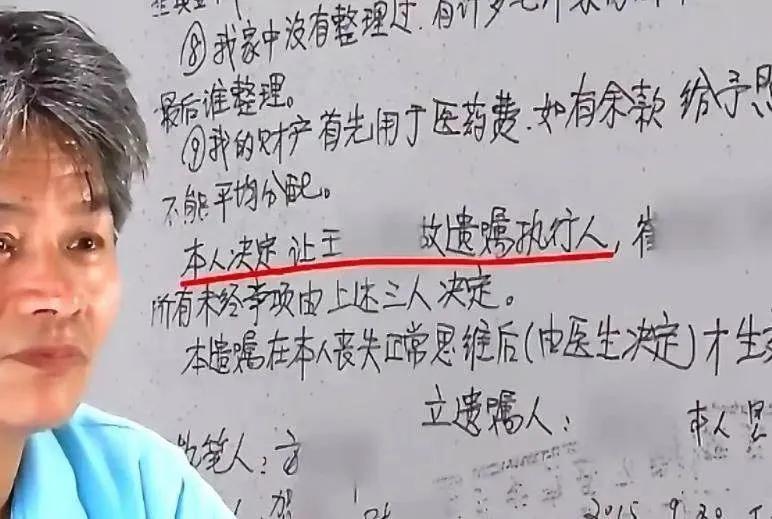 ⑧我家中没有整理过.有许多
最后谁整理。
⑨我的财产首先用于医药费.如有余款 给予
不能平均分配。
本人决定让王 故遗嘱执行人,崔
所有未经事项由上述三人决定。
本遗嘱在本人丧失正常思维后(由医生决定)才生
立遗嘱人: 本人
执笔人:
2015.9.20